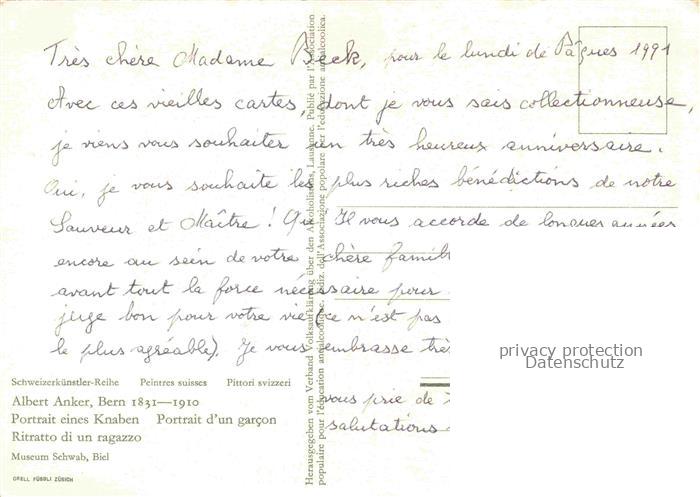 Très chère Madame Beck, pour le lundi de Pâques 1991
Avec ces vieilles cartes, dont je vous sais collectionneuse,
je viens vous souhaiter un très heureux anniversaire.
Oui, je vous souhaite les plus riches bénédictions de notre
Sauveur et Maître ! Qu' Il vous accorde de longues années
encore au sein de votre chère famil
avant tout la force nécessaire pour
juge bon pour votre vie (ce n'est pas
le plus agréable). Je vous embrasse trè
vous prie de
salutations
privacy protection
Datenschutz
Schweizerkünstler-Reihe Peintres suisses Pittori svizzeri
Albert Anker, Bern 1831—1910
Portrait eines Knaben Portrait d'un garçon
Ritratto di un ragazzo
Museum Schwab, Biel
ORELL FÜSSLI ZÜRICH
Herausgegeben vom Verband Volksaufklärung über den Alkoholismus, Lausanne. Publié par l'Association
populaire pour l'éducation antialcoolique. Ediz. dell'Associazione popolare per l'educazione antialcoolica.